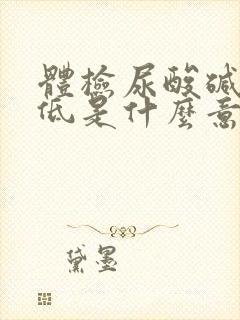 體檢尿酸碱
低是什麼意
黛墨